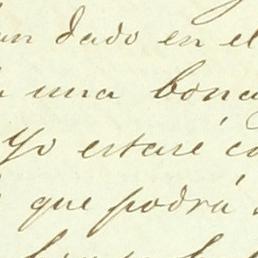 un dado en el
una bona
Yo estaré co
que podrá